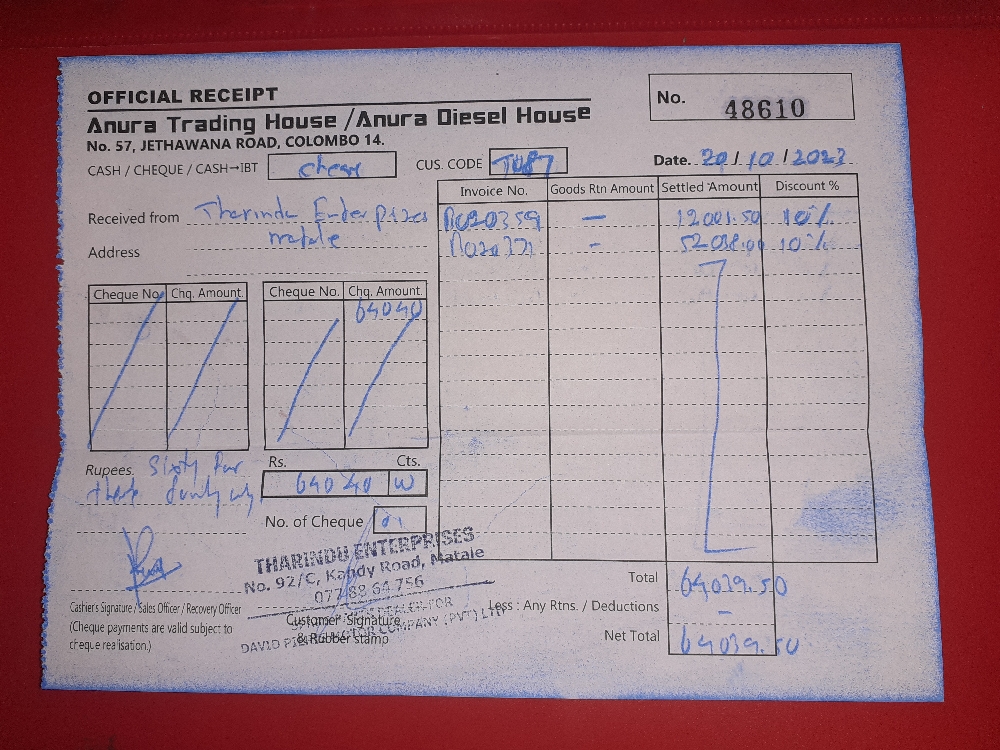 OFFICIAL RECEIPT
No. 48610
Anura Trading House / Anura Diesel House
No. 57, JETHAWANA ROAD, COLOMBO 14.
CASH / CHEQUE / CASH→IBT
CUS. CODE T087
Date. 20/10/2023
Invoice No. Goods Rtn Amount Settled Amount Discount %
Received from Tharindu Enterprizes
— 12001.50 10%
Address matale
– 52038.00 10%
Cheque No. Chq. Amount. Cheque No. Chq. Amount.
64040
Rupees. Sixty
Rs. Cts.
64040
No. of Cheque 01
THARINDU ENTERPRISES
No. 92/C, Kandy Road, Matale
077 88 64 756
Total 64039.50
Cashier's Signature / Sales Officer / Recovery Officer
Less : Any Rtns. / Deductions –
(Cheque payments are valid subject to
cheque realisation.)
Customer Signature
& Rubber stamp
DEALER FOR
DAVID COMPANY (PVT) LTD
Net Total 64039.50